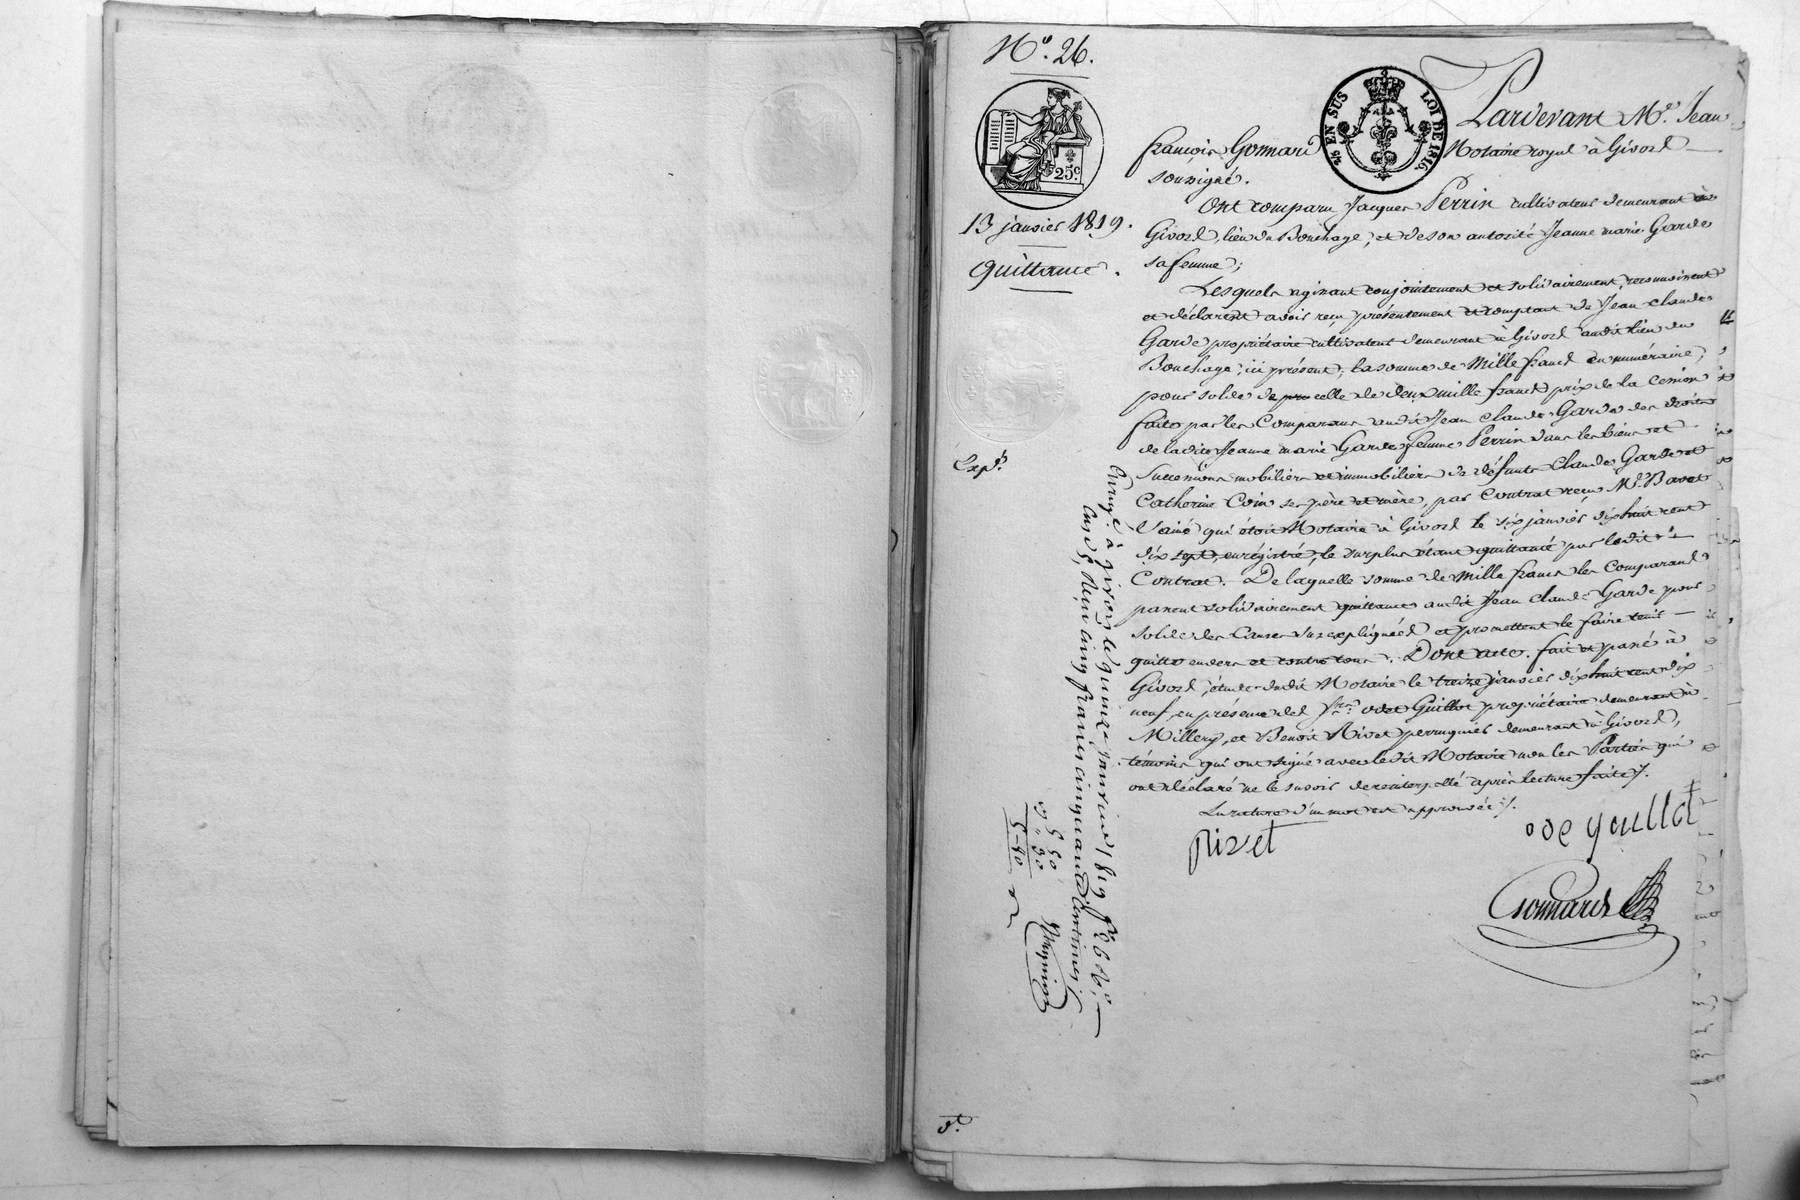 N.o 26.
25.c
¼ EN SUS
LOI DE 1816.
13 janvier 1819.
Quittance.
Exp.
Pardevant M.e Jean
françois Gonnard Notaire royal à Givors
soussigné.
Ont comparu Jacques Perrin cultivateur demeurant à
Givors, lieu du Bouchage, et de son autorité Jeanne marie Garde
sa femme;
Lesquels agissant conjointement et solidairement, reconnoissent
et déclarent avoir reçu présentement et comptant de Jean Claude
Garde propriétaire cultivateur demeurant à Givors audit lieu du
Bouchage, ici présent, la somme de Mille francs en numéraire,
pour solde de celle de deux mille francs prix de la Cession
faite par les Comparans audit Jean Claude Garde des droits
de ladite Jeanne marie Garde femme Perrin dans les biens et
Successions mobiliers et immobiliers de défunts Claude Garde et
Catherine Coin ses père et mère, par Contrat reçu M.e Bavet
l'ainé qui étoit Notaire à Givors le six janvier dix huit cent
dix sept, enregistré, le surplus étant quittancé par ledit
Contrat. De laquelle somme de Mille francs les Comparans
passent solidairement quittance audit Jean Claude Garde pour
solde des Causes susexpliquées et promettent le faire tenir
quitte envers et contre tous. Dont acte. fait et passé à
Givors, étude dudit Notaire le treize janvier dix huit cent dix
neuf, en présence de S.r odet Guillot propriétaire demeurant à
Millery, et Benoit Rivet perruquier demeurant à Givors,
témoins qui ont signé avec ledit Notaire non les Parties qui
ont déclaré ne le savoir de ce interpellé après lecture faite.
La rature d'un mot est approuvée.
Rivet
ode guillot
Gonnard
Enregé à givors le quinze janvier 1819 f.o 26
reçu cinq francs cinquante centimes
5 50
55